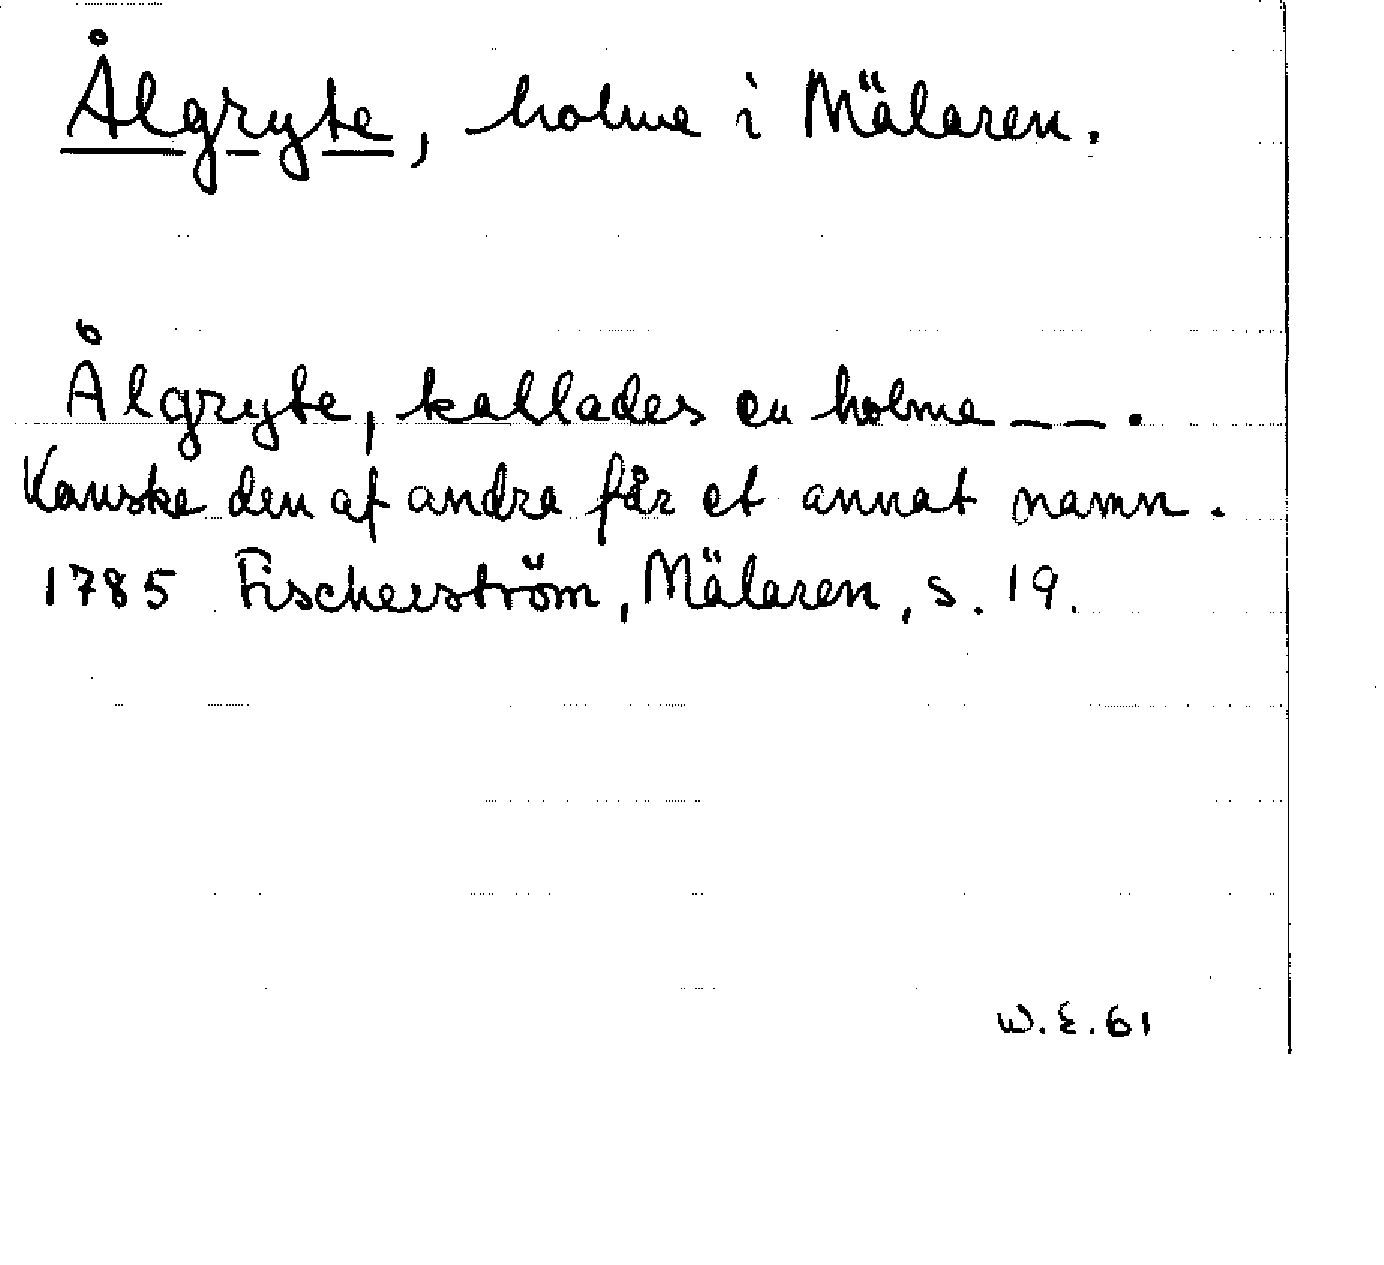 Ålgryte, holme i Mälaren.
Ålgryte, kallades en holme — — .
Kanske den af andra får et annat namn.
1785 Fischerström, Mälaren, s. 19.
W.E.61